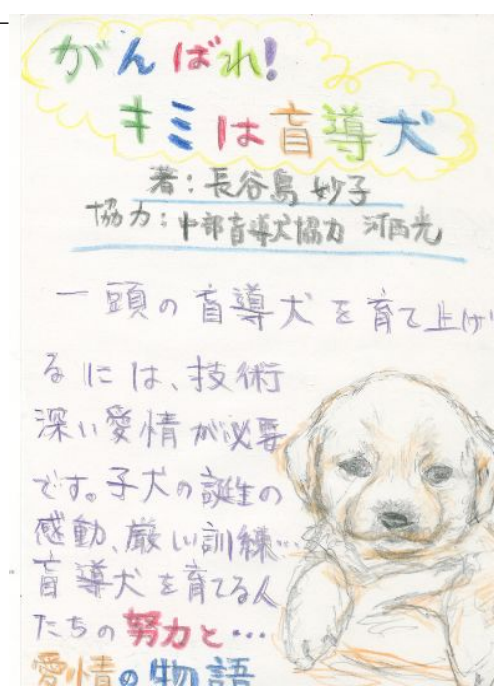 がんばれ!
キミは盲導犬
著:長谷島 妙子
協力:中部盲導犬協力 河西光
一頭の盲導犬を育て上げ
るには、技術
深い愛情が必要
です。子犬の誕生の
感動、厳しい訓練…
盲導犬を育てる人
たちの努力と…
愛情の物語